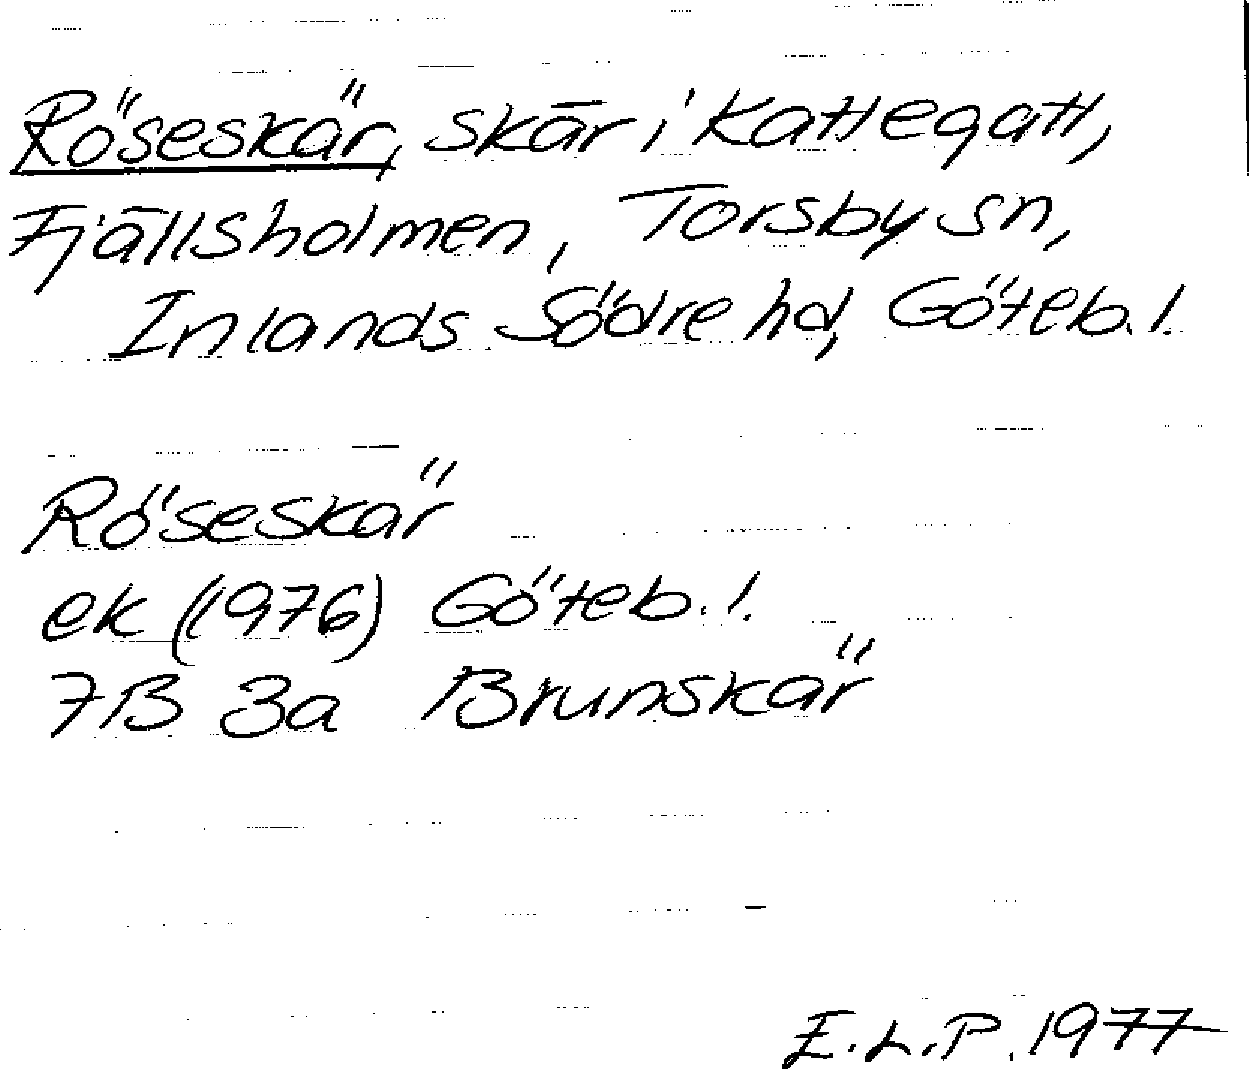 Röseskär, skär i Kattegatt,
Fjällsholmen, Torsby sn,
Inlands Södre hd, Göteb. l.
Röseskär
ek (1976) Göteb. l.
7B 3a Brunskär
E.L.P. 1977